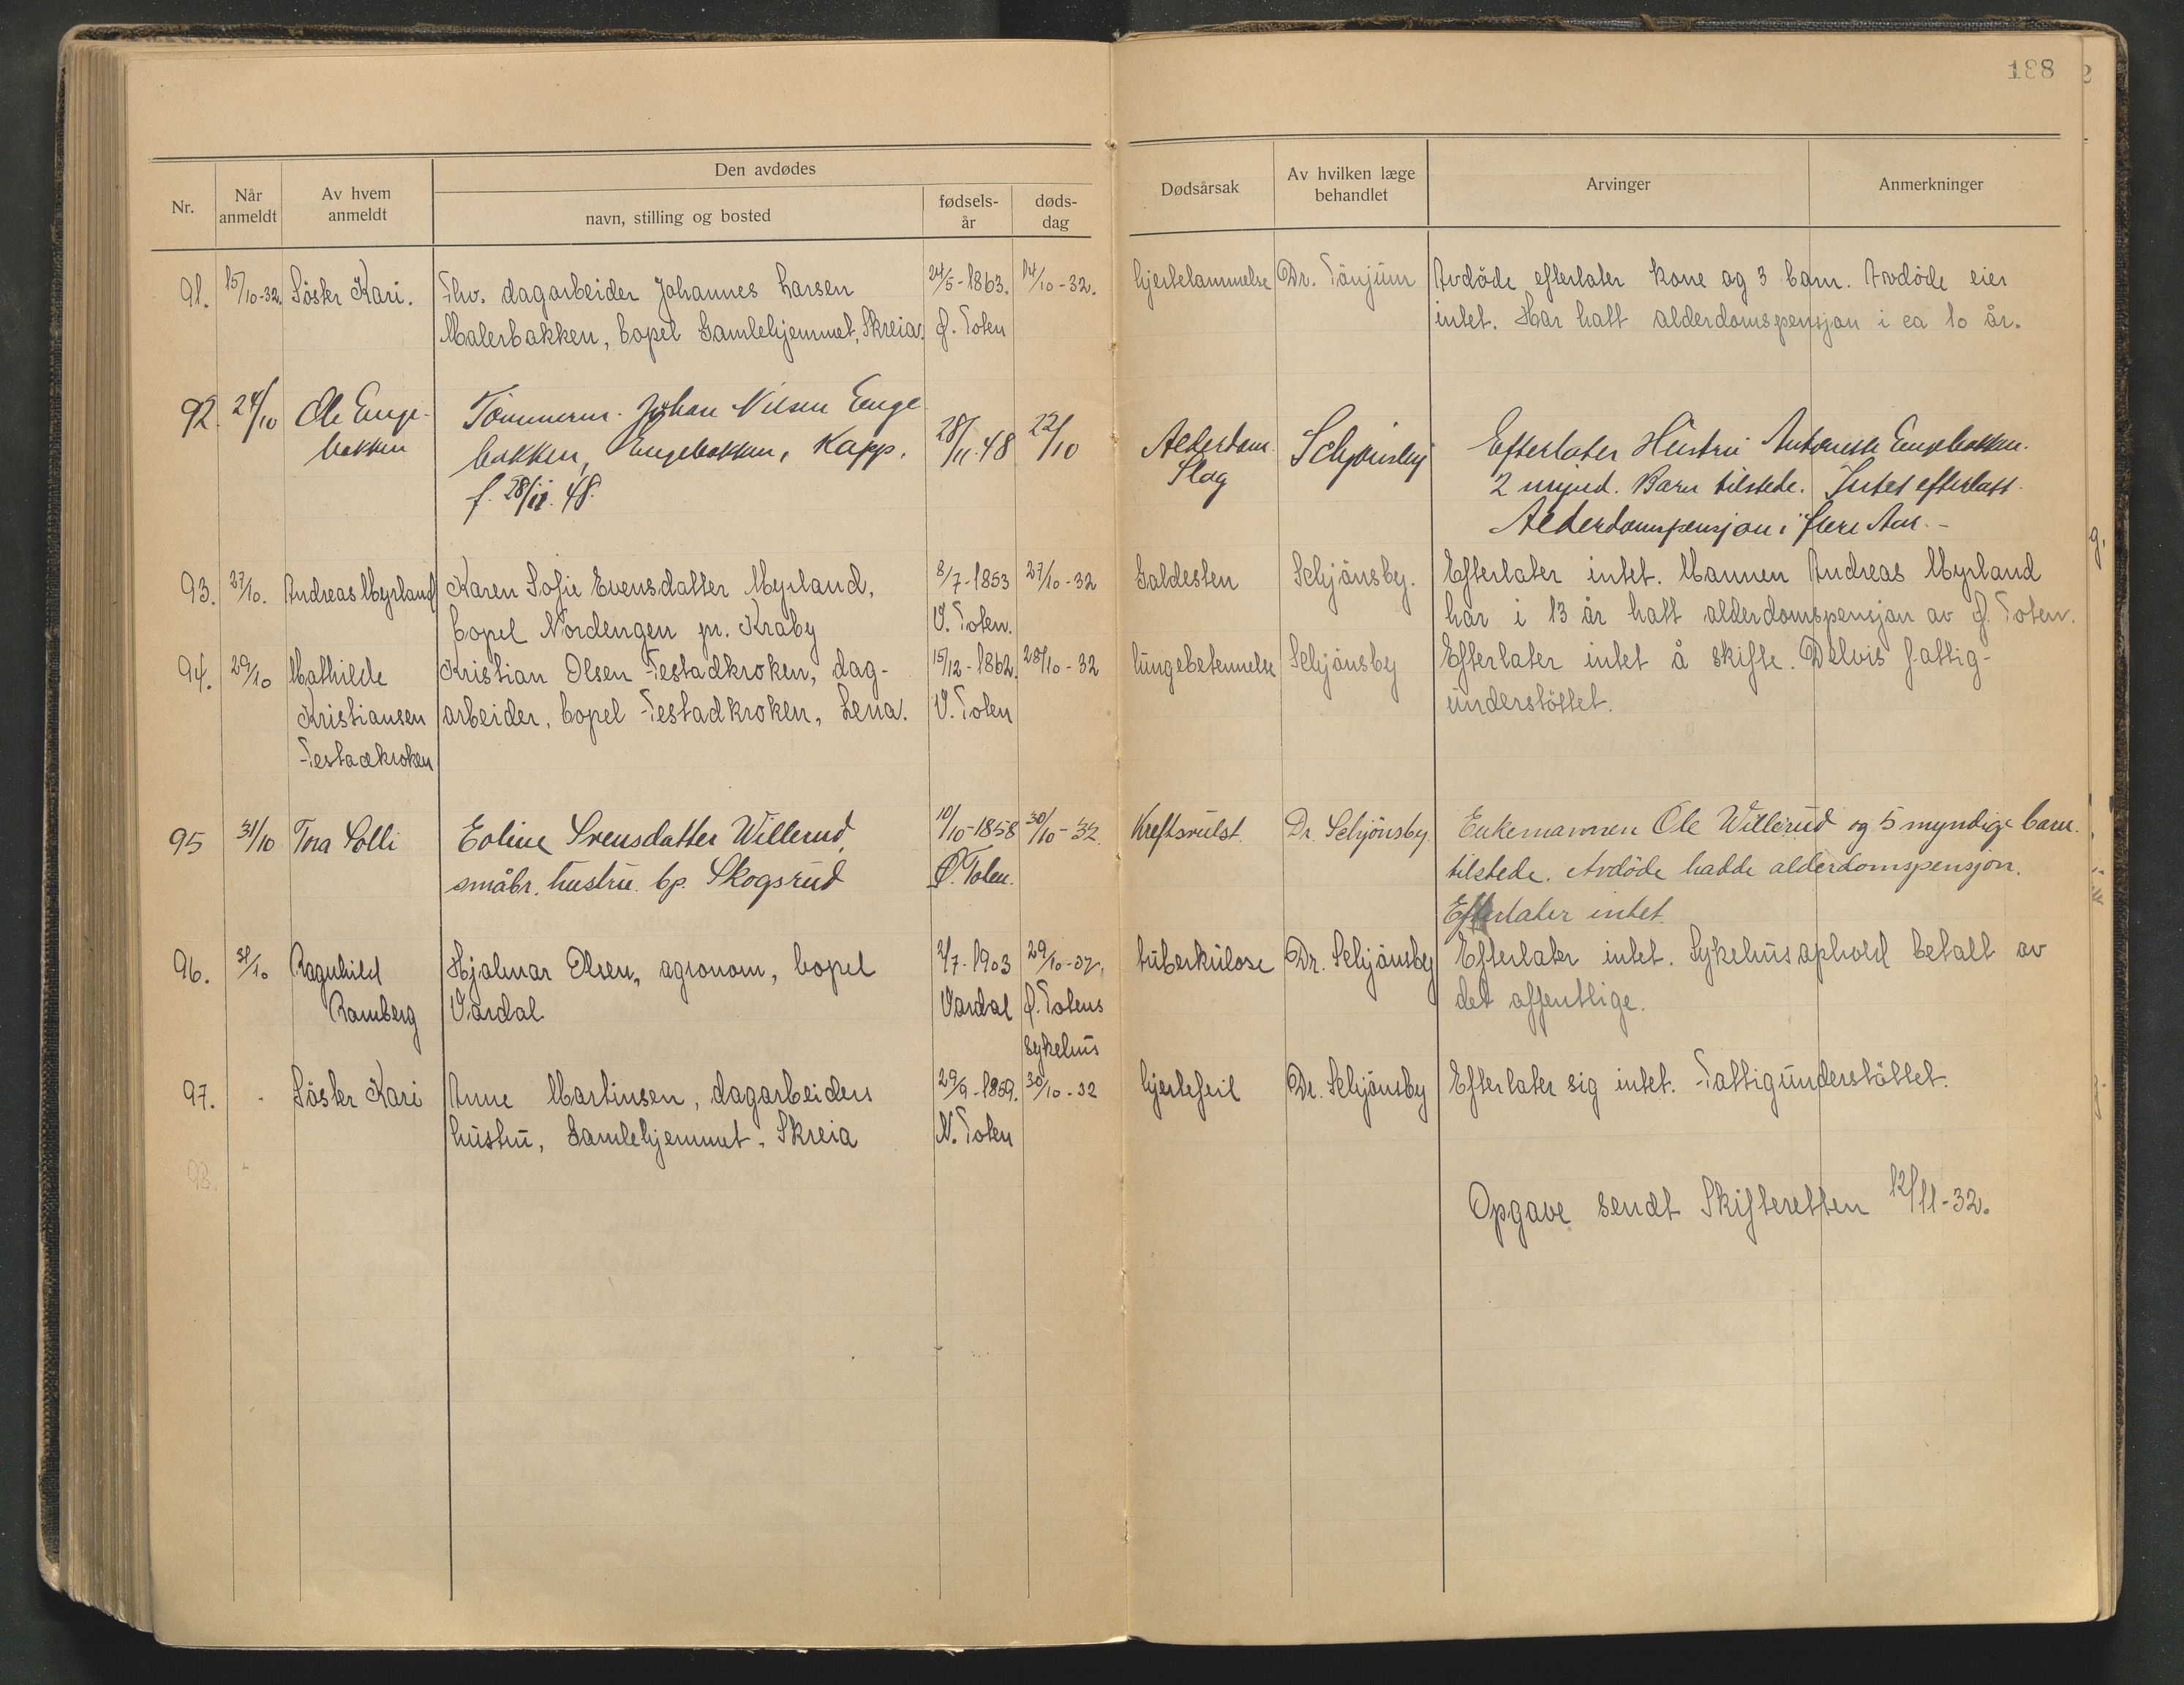 188
Nr.
Når anmeldt
Av hvem anmeldt
Den avdødes
navn, stilling og bosted
fødsels-år
døds-dag
Dødsårsak
Av hvilken læge behandlet
Arvinger
Anmerkninger
91. 15/10-32. Söster Kari. Fhv. dagarbeider Johannes Larsen 24/5-1863. 14/10-32. hjertelammelse Dr. Tönjüm Avdöde efterlater kone og 3 barn. Avdöde eier
Malerbakken, bopel Gamlehjemmet, Skreia. Ø. Toten intet. Har hatt alderdomspensjon i ca 10 år.
92. 24/10 Ole Enge- Tömmerm. Johan Nilsen Enge
bakken bakken, Engebakken, Kapp. 28/11.48 22/10 Alderdom Schjönsby Efterlater Hüstrü Antonette Engebakken.
f. 28/11.48. Slag 2 mynd. Barn tilstede. Intet efterlatt.
Alderdomspensjon i flere Aar.-
93. 27/10. Andreas Myrland Karen Sofie Evensdatter Myrland, 8/7-1853 27/10-32 Galdesten Schjönsby. Efterlater intet. Mannen Andreas Myrland
bopel Nordengen pr. Kraby V. Toten. har i 13 år hatt alderdomspensjon av Ø. Toten.
94. 29/10 Mathilde Kristian Olsen Festadkroken, dag- 15/12-1862. 28/10-32 lüngebetennelse Schjönsby Efterlater intet å skifte. Delvis fattig-
Kristiansen arbeider, bopel Festadkroken, Lena. V. Toten ünderstöttet.
Festadkroken
95 31/10 Tora Solli Eoline Svensdatter Willerud, 10/10-1858 30/10-32. Kreftsvülst. Dr. Schjönsby. Enkemannen Ole Willerüd og 5 myndige barn.
småbr. hüstrü. bp. Skogsrüd Ø. Toten. tilstede. Avdöde hadde alderdomspensjon.
Efterlater intet.
96. 31/10 Ragnhild Hjalmar Olsen, agronom, bopel 2/7-1903 29/10-32, tüberkülose Dr. Schjönsby Efterlater intet. Sykehüsophold betalt av
Ramberg Vardal Vardal Ø. Totens det offentlige.
sykehüs
97. - Söster Kari Anne Martinsen, dagarbeiders 29/9-1859. 30/10-32 hjertefeil Dr. Schjönsby Efterlater sig intet. Fattigünderstöttet.
hüstrü, Gamlehjemmet, Skreia N. Toten
98. -
Opgave sendt Skifteretten 12/11-32.